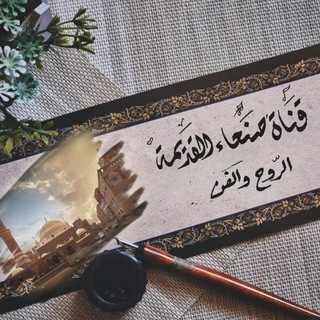 قناة صنعاء القديمة
الرّوح والفن